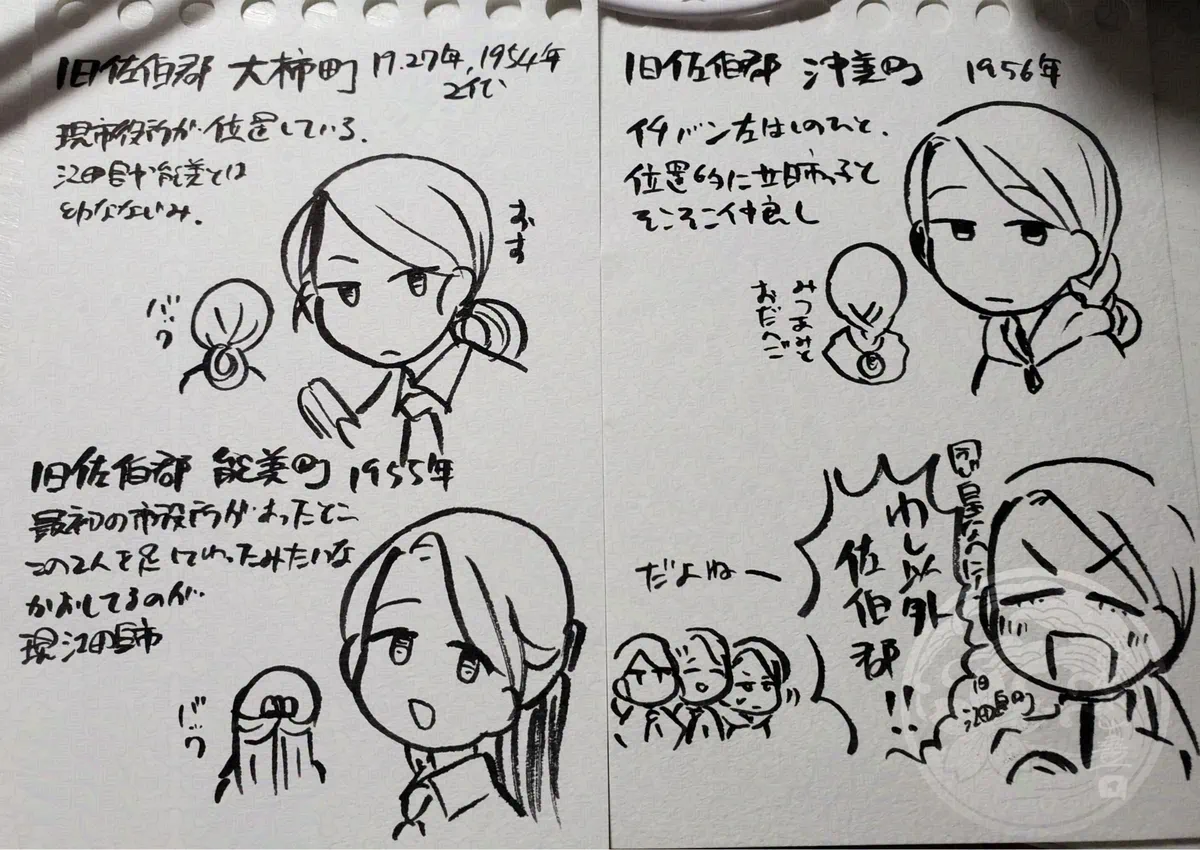 旧佐伯郡 大柿町 1927年,1954年
2代
現市役所が位置している。
江田島や能美とは
おす
バック
旧佐伯郡 能美町 1955年
最初の市役所があったとこ
この2人を足してわったみたいな
かおしてるのが
現江田島市
バック
旧佐伯郡 沖美町 1956年
イチバン左はしのひと。
位置的に廿日市っ子と
そこそこ仲良し
みつあみと
おだんご
わし以外
佐伯郡!!
旧
江田島町
だよねー